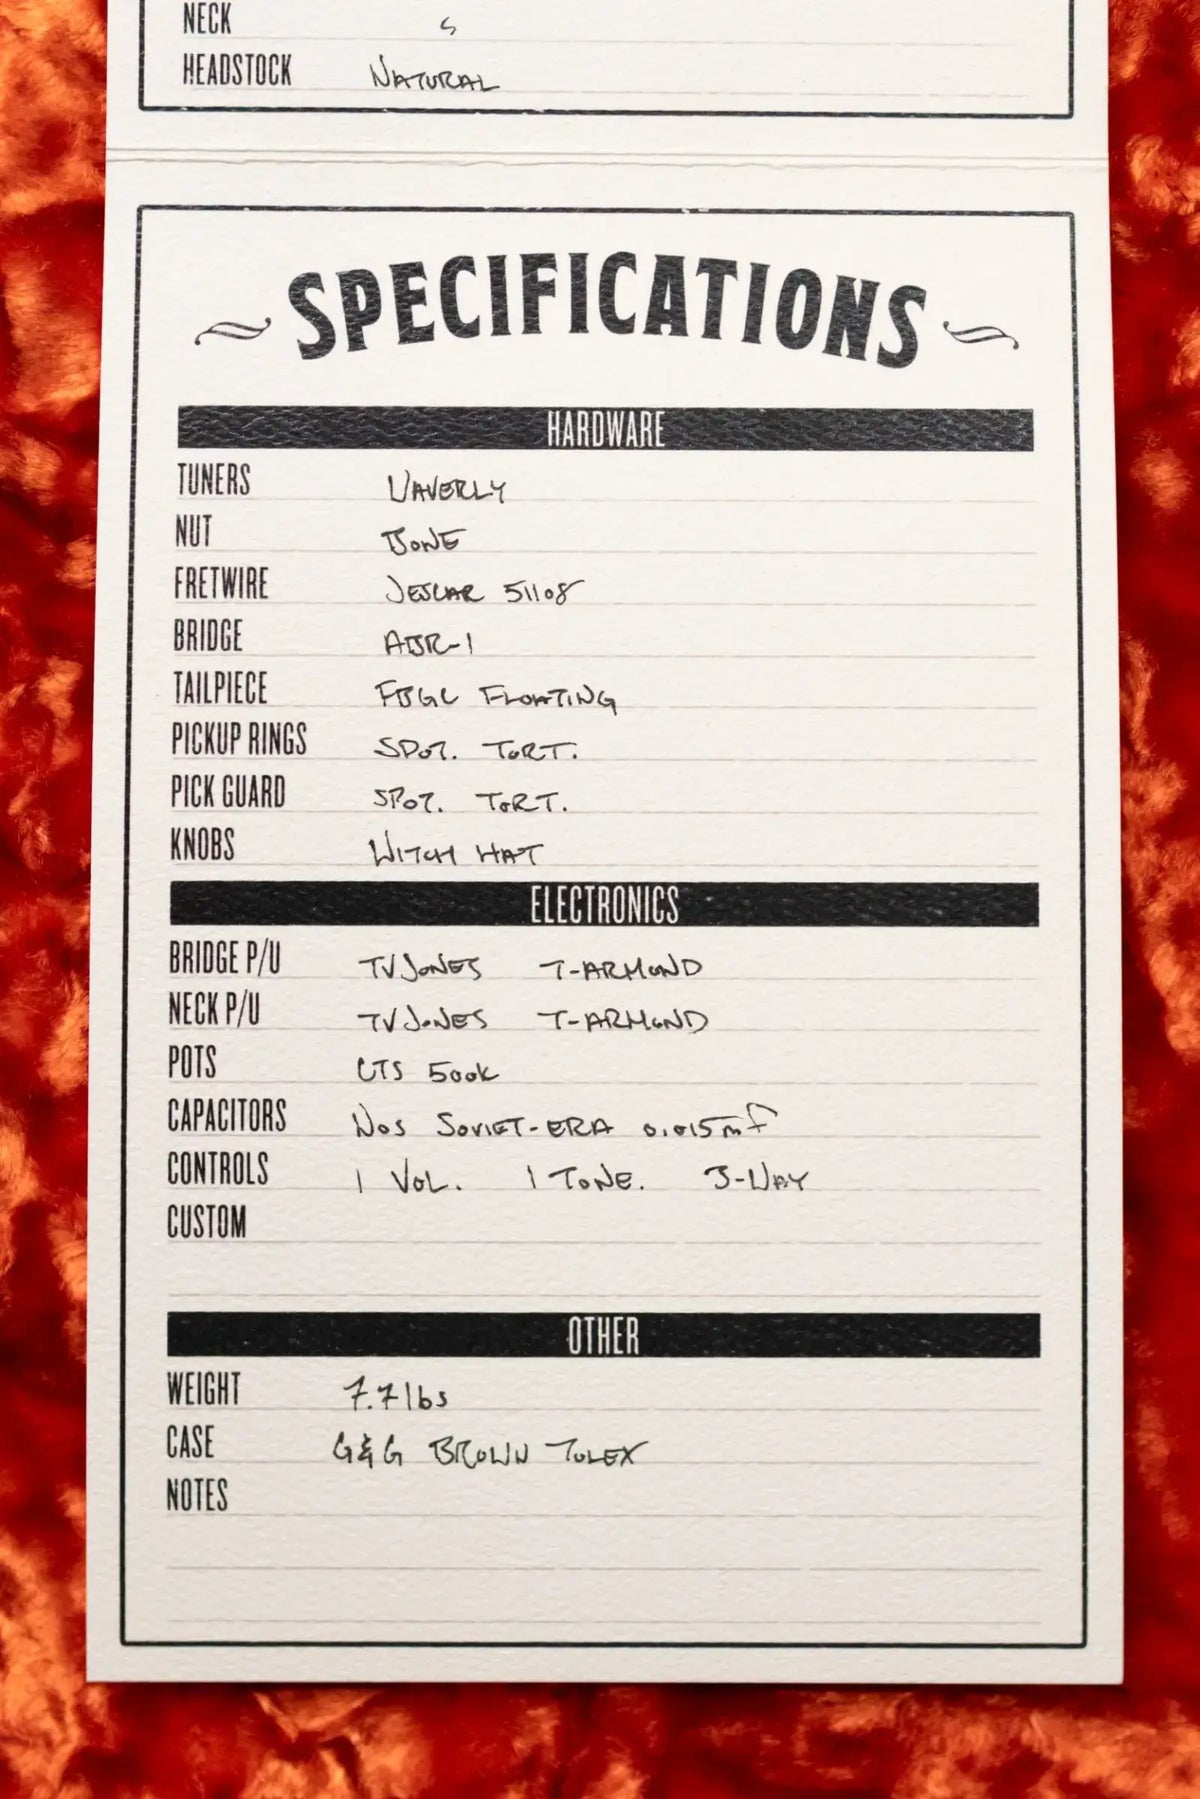 NECK
HEADSTOCK NATURAL
SPECIFICATIONS
HARDWARE
TUNERS WAVERLY
NUT BONE
FRETWIRE JESCAR 51108
BRIDGE ABR-1
TAILPIECE FBGC FLOATING
PICKUP RINGS SPOT. TORT.
PICK GUARD SPOT. TORT.
KNOBS WITCH HAT
ELECTRONICS
BRIDGE P/U TV JONES T-ARMOND
NECK P/U TV JONES T-ARMOND
POTS CTS 500K
CAPACITORS NOS SOVIET-ERA 0.015mf
CONTROLS 1 VOL. 1 TONE. 3-WAY
CUSTOM
OTHER
WEIGHT 7.7 lbs
CASE G&G BROWN TOLEX
NOTES